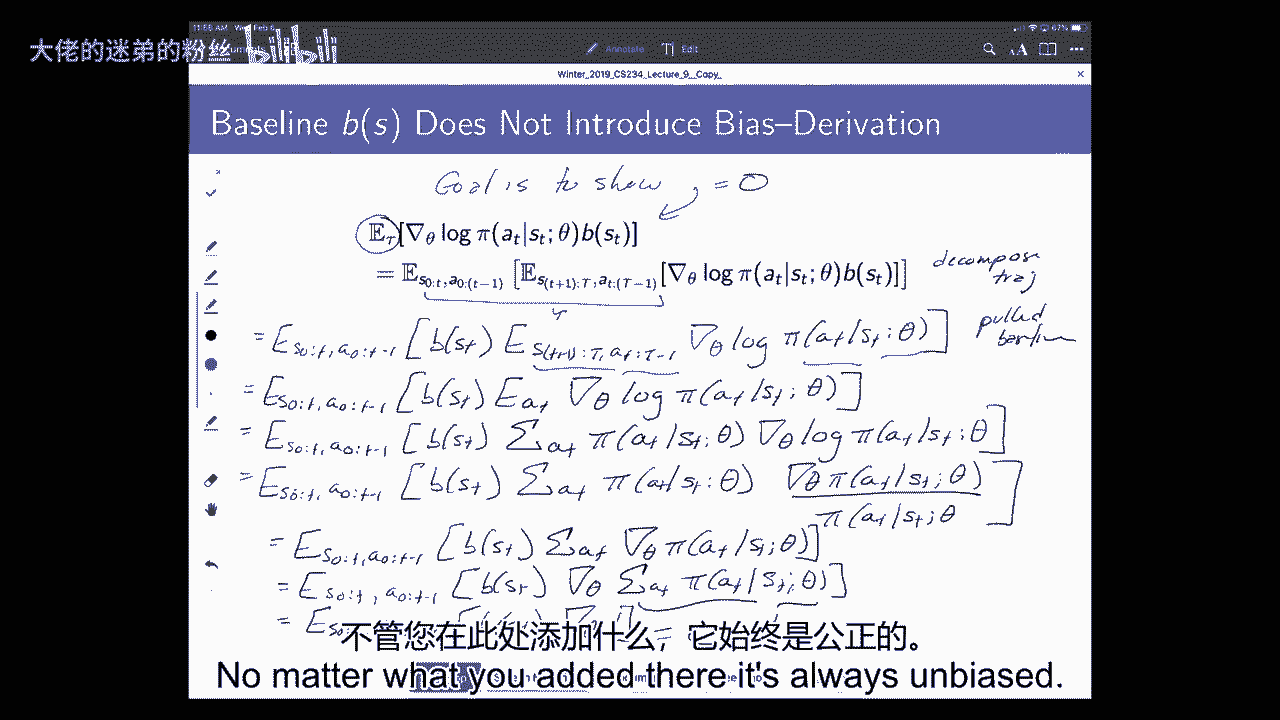 11:58 AM Wed Feb 67%
大佬的迷弟的粉丝 bilibili
Annotate Edit
Winter_2019_CS234_Lecture_9__Copy_
Baseline b(s) Does Not Introduce Bias–Derivation
Goal is to show = 0
𝔼τ[∇θ log π(at|st; θ)b(st)]
= 𝔼s0:t,a0:(t−1) [𝔼s(t+1):T,at:(T−1)[∇θ log π(at|st; θ)b(st)]] decompose traj
= Es0:t,a0:t-1 [b(st) Es(t+1):T,at:T-1 ∇θ log π(at|st;θ)] pulled
= Es0:t,a0:t-1 [b(st) Eat ∇θ log π(at|st;θ)]
= Es0:t,a0:t-1 [b(st) Σat π(at|st;θ) ∇θ log π(at|st;θ]
= Es0:t,a0:t-1 [b(st) Σat π(at|st:θ) ∇θ π(at|st;θ) / π(at|st;θ]
= Es0:t,a0:t-1 [b(st) Σat ∇θ π(at|st;θ)]
= Es0:t,a0:t-1 [b(st) ∇θ Σat π(at|st;θ)]
不管您在此处添加什么，它始终是公正的。
No matter what you added there it's always unbiased.